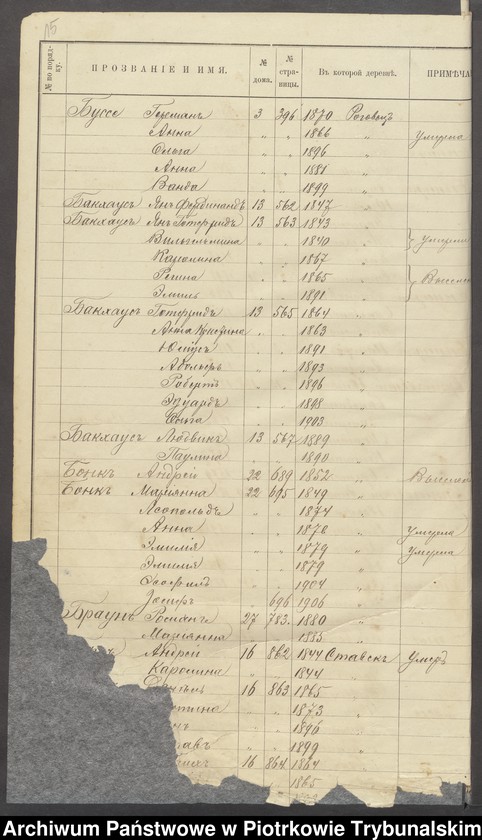 15
№ по порядку. ПРОЗВАНІЕ И ИМЯ. № дома. № страницы. Въ которой деревнѣ. ПРИМѢЧА
Буссе Германъ 3 396 1870 Роговецъ
Анна " " 1866 " Умерла
Ольга " " 1896 "
Анна " " 1881 "
Ванда " " 1899 "
Бакхаусъ Янъ Фердинандъ 13 562 1847 "
Бакхаусъ Янъ Готфридъ 13 563 1843 "
Вильгельмина " " 1840 "
Каролина " " 1867 "
Регина " " 1865 "
Эмиль " " 1891 "
Бакхаусъ Готфридъ 13 565 1864 "
Анна " " 1863 "
Юліусъ " " 1891 "
Адольфъ " " 1893 "
Робертъ " " 1896 "
Эдуардъ " " 1898 "
" " 1903 "
Бакхаусъ Людвикъ 13 567 1889 "
Паулина " " 1890 "
Бонкъ Андрей 22 689 1852 "
Бонкъ Маріянна 22 695 1849 "
Леопольдъ " " 1874 "
Анна " " 1878 " Умерла
Эмилія " " 1879 " Умерла
Эмилія " " 1879 "
Теофилъ " " 1904 "
Іосифъ 696 1906 "
Браунъ Романъ 27 783 1880 "
Маріянна " " 1885 "
Андрей 16 862 1844 Ставскъ Умеръ
Каролина " " 1844 "
16 863 1865 "
" " 1873 "
" " 1896 "
" " 1899 "
16 864 1864 "
1865
Archiwum Państwowe w Piotrkowie Trybunalskim